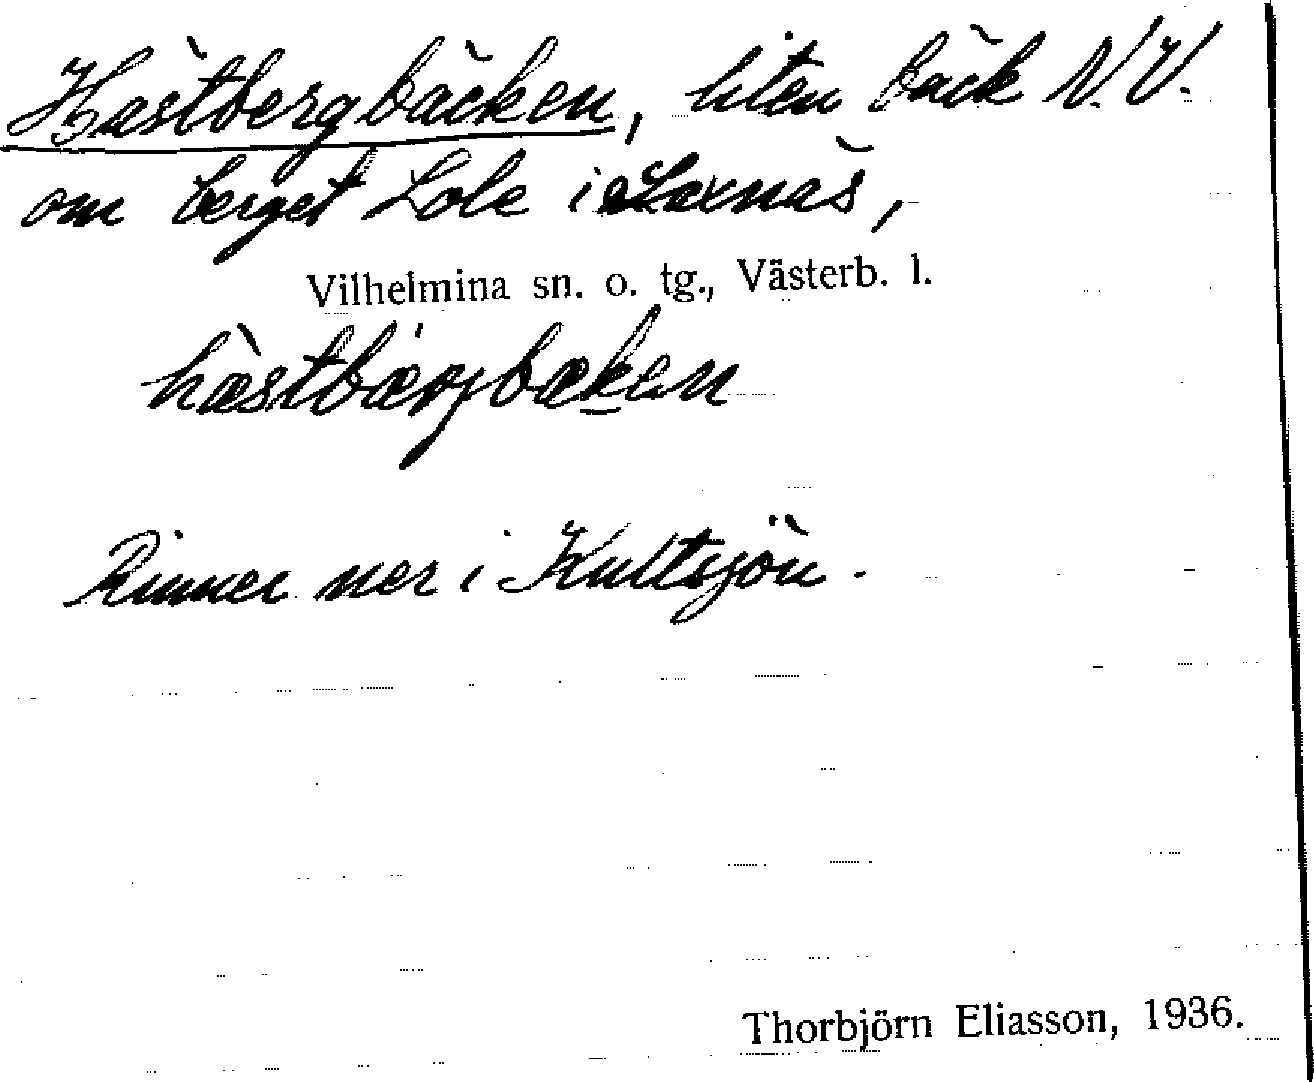 Hästbergbäcken, liten bäck N.V.
om berget Lole i Laxnäs,
Vilhelmina sn. o. tg., Västerb. l.
hæ̀stbær̨bæken
Rinner ner i Kultsjön.
Thorbjörn Eliasson, 1936.